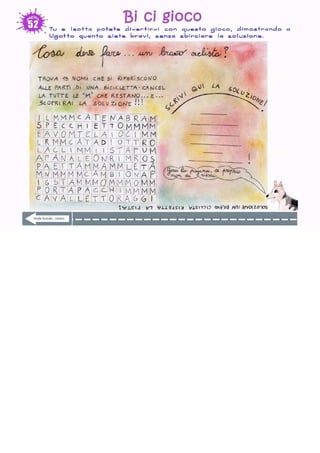 52
Bi ci gioco
Tu e Isotta potete divertirvi con questo gioco, dimostrando a
Ugotto quanto siete bravi, senza sbirciare la soluzione.
Cosa deve fare... un bravo ciclista?
TROVA 15 NOMI CHE SI RIFERISCONO
ALLE PARTI DI UNA BICICLETTA. CANCEL
LA TUTTE LE "M" CHE RESTANO...E...
SCOPRIRAI LA SOLUZIONE!!!
SCRIVI QUI LA SOLUZIONE!
ILMMMCATENABRAM
SPECCHIETTOMMMM
EAVOMTELAIOCIMM
LRMMCATADIOTTRO
LACLIMMIISTAPUM
APANALEONRIMROS
PAEITAMMAMMLETA
MNMMMMCAMBIONAP
IGSIAMMMOMMMOMM
PORTAPACCHIMMMM
CAVALLETTORAGGI
!